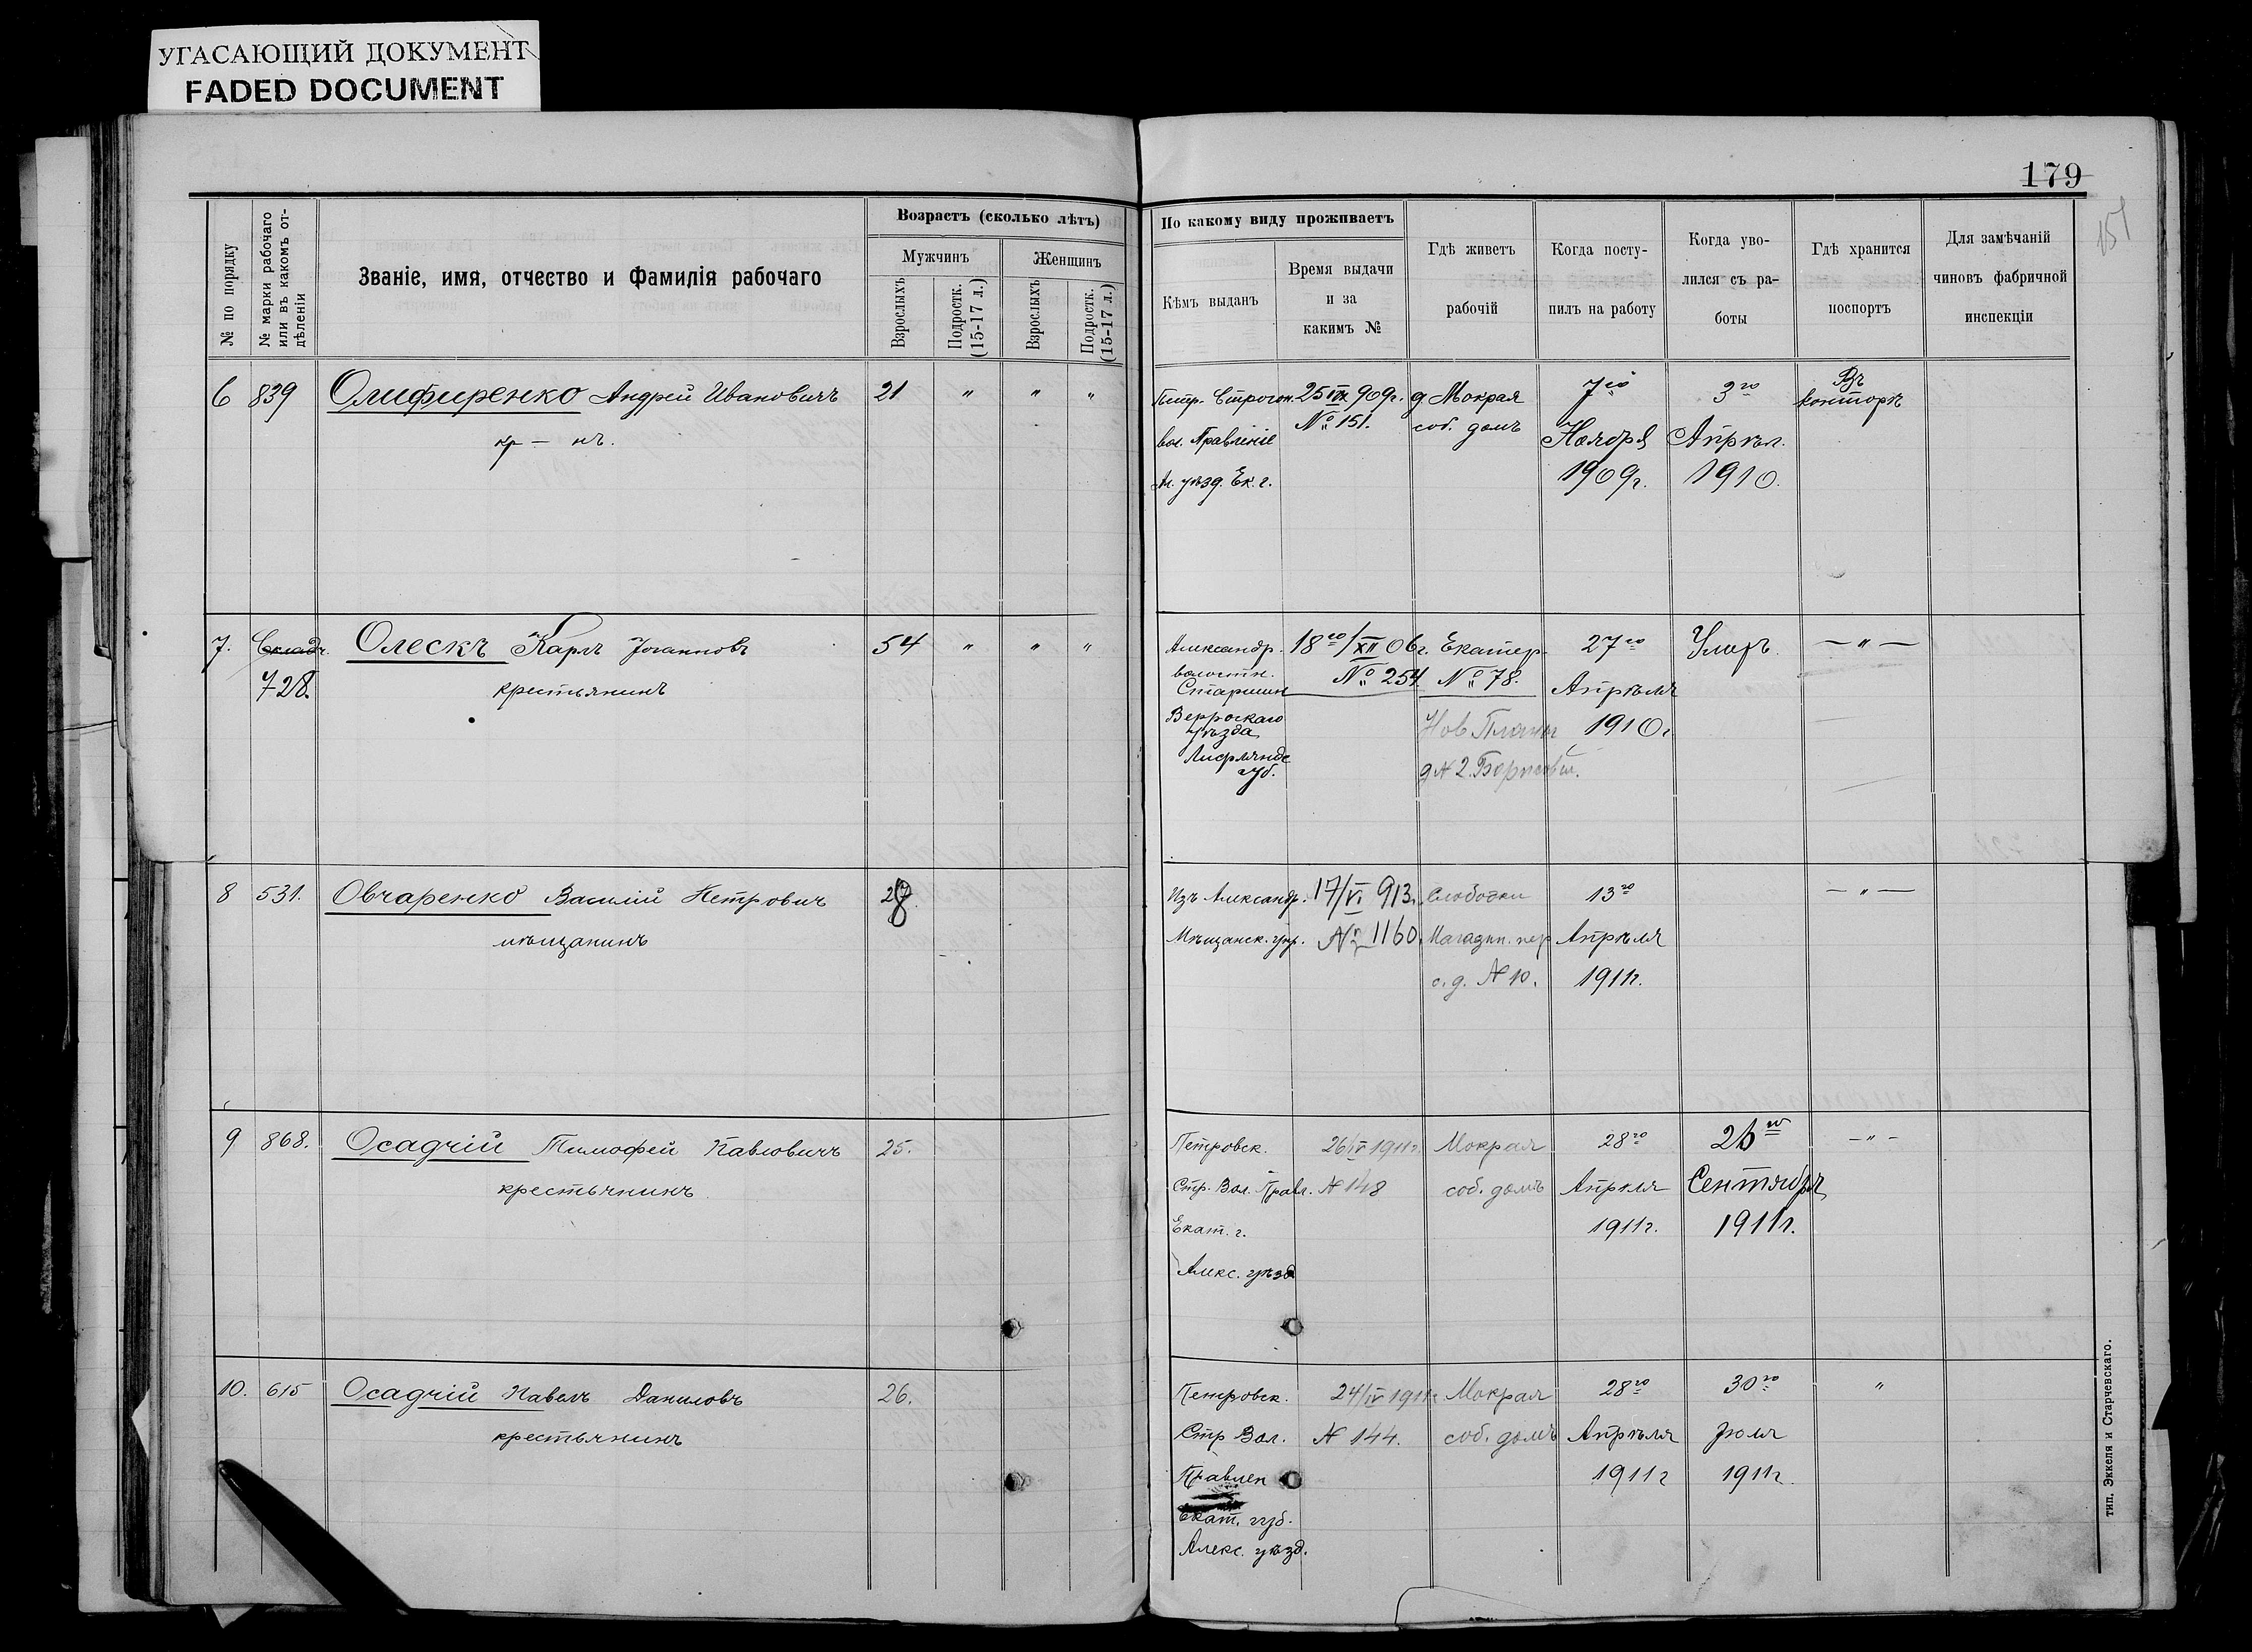 УГАСАЮЩИЙ ДОКУМЕНТ
FADED DOCUMENT
179
№ по порядку
№ марки рабочаго или въ какомъ отдѣленіи
Званіе, имя, отчество и Фамилія рабочаго
Возрастъ (сколько лѣтъ)
Мужчинъ
Женщинъ
Взрослыхъ
Подростк. (15-17 л.)
Взрослыхъ
Подростк. (15-17 л.)
По какому виду проживаетъ
Кѣмъ выданъ
Время выдачи
и за
какимъ №
Гдѣ живетъ
рабочій
Когда посту-
пилъ на работу
Когда уво-
лился съ ра-
боты
Гдѣ хранится
поспортъ
Для замѣчаній
чиновъ фабричной
инспекціи
6 839 Олифиренко Андрей Ивановичъ 21 " " "
кр - нъ.
Петр. Строгон.
вол. Правленіе
Ал. уѣзд. Ек. г.
909г.
№ 151.
д Мокрая
соб. домъ
7го
Ноября
1909г.
3го
Апрѣл.
1910.
Въ
конторѣ
7. Складч. Олескъ Карлъ Іоганновъ 54 " " "
728. крестьянинъ
Александр.
волостн.
Старшин
Верроскаго
уѣзда
Лифляндс
губ.
18го/XII 06г.
№ 254
Екатер.
№ 78.
Нов Планы
д № 2.
27го
Апрѣля
1910г.
Умеръ
— " —
8 531. Овчаренко Василій Петрович
мѣщанинъ
Изъ Александр.
Мѣщанск. упр.
17/VI 913.
№ 1160.
Слободки
Магазин. пер
с. д. № 10.
13го
Апрѣля
1911г.
— " —
9 868. Осадчій Тимофей Павловичъ 25.
крестьянинъ
Петровск.
Стр. Вол. Правл.
Екат. г.
Алекс. уѣзд
26/IV 1911г.
№ 148
Мокрая
соб. домъ
28го
Апрѣля
1911г.
Сентября
1911г.
— " —
10. 615 Осадчій Павелъ Даниловъ 26.
крестьянинъ
Петровск.
Стр Вол.
Правлен
Екат. губ.
Алекс. уѣзд.
24/IV 1911г
№ 144.
Мокрая
соб. домъ
28го
Апрѣля
1911г
30го
Іюля
1911г.
"
тип. Эккеля и Старчевскаго.